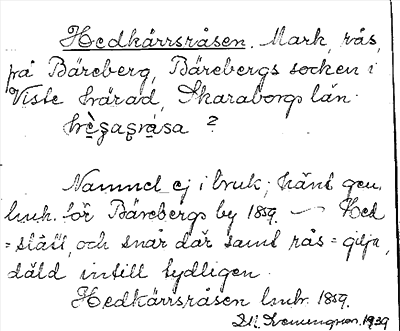 Hedkärrsråsen. Mark, rås,
på Bäreberg, Bärebergs socken i
Viste härad, Skaraborgs län.
?
Namnet ej i bruk; hänt gen.
lmk. för Bärebergs by 1859. — Hed
= slätt, och snår där samt rås = gilja,
däld intill tydligen.
Hedkärrsråsen lmk. 1859.
1939